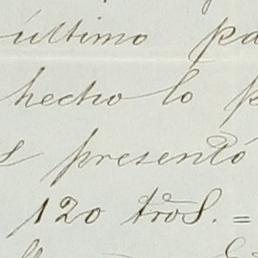 último pa
hecho lo p
s presentó
120 tros. =